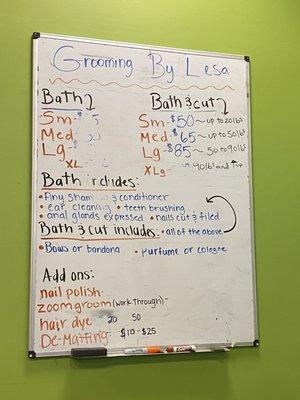 Grooming By Lesa
Bath Bath & cut
Sm- $ 5 Sm- $50~ up to 20lbs
Med- $ Med- $65~ up to 50lbs
Lg- $ Lg- $85~ 50 to 90lbs
XL XLg- 90lbs and
Bath includes:
• Any Sham & conditioner
• ear cleaning • teeth brushing
• anal glands expressed • nails cut & filed
Bath & cut includes: • all of the above
• Bows or bandana • purfume or cologne
Add ons:
nail polish-
zoomgroom (work through)-
hair dye 20 50
De-Matting- $10-$25